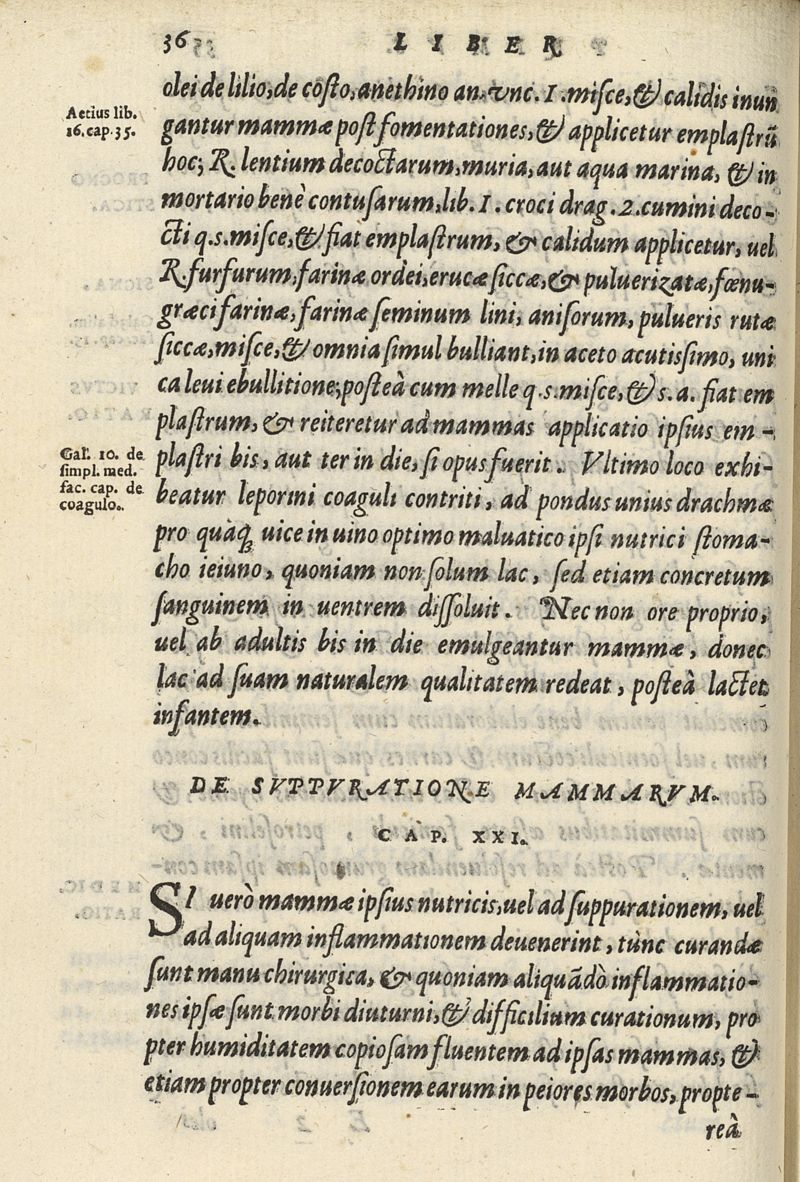 36 LIBER
olei de lilio, de costo, anethino an. vnc. I. misce, & calidis inun
Aetius lib.
16. cap. 35.
gantur mammæ post fomentationes, & applicetur emplastrũ
hoc; R. lentium decoctarum, muria, aut aqua marina, & in
mortario benè contusarum, lib. I. croci drag. 2. cumini deco-
cti q.s. misce, & fiat emplastrum, & calidum applicetur, uel
R. furfurum, farinæ ordei, erucæ siccæ, & puluerizatæ, fœnu-
græci farinæ, farinæ seminum lini, anisorum, pulueris rutæ
siccæ, misce, & omnia simul bulliant, in aceto acutissimo, uni
ca leui ebullitione, posteà cum melle q.s. misce, & s.a. fiat em
plastrum, & reiteretur ad mammas applicatio ipsius em-
Gal. 10. de
simpl. med.
fac. cap. de
coagulo.
plastri bis, aut ter in die, si opus fuerit. Vltimo loco exhi-
beatur leporini coaguli contriti, ad pondus unius drachmæ
pro quaq; uice in uino optimo maluatico ipsi nutrici stoma-
cho ieiuno, quoniam non solum lac, sed etiam concretum
sanguinem in uentrem dissoluit. Nec non ore proprio,
uel ab adultis bis in die emulgeantur mammæ, donec
lac ad suam naturalem qualitatem redeat, posteà lactet
infantem.
DE SVPPVRATIONE MAMMARVM.
CAP. XXI.
SI uerò mammæ ipsius nutricis, uel ad suppurationem, uel
ad aliquam inflammationem deuenerint, tùnc curandæ
sunt manu chirurgica, & quoniam aliquãdò inflammatio-
nes ipsæ sunt morbi diuturni, & difficilium curationum, pro
pter humiditatem copiosam fluentem ad ipsas mammas, &
etiam propter conuersionem earum in peiores morbos, propte-
reà